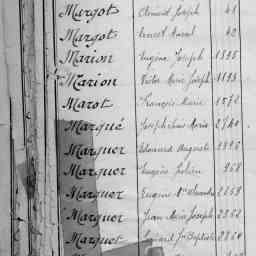 Margot Clément Joseph 41
Margot Ernest Marcel 42
Marion Eugène Joseph 1395
Marion Victor Marie Joseph 1193
Marot François Marie 1572
Marqué Joseph Marie 2740
Marquer Edouard Auguste 3995
Marquer Eugène Julien 958
Marquer Eugène 2253
Marquer Jean Marie Joseph 2362
Marquet Jn Baptiste